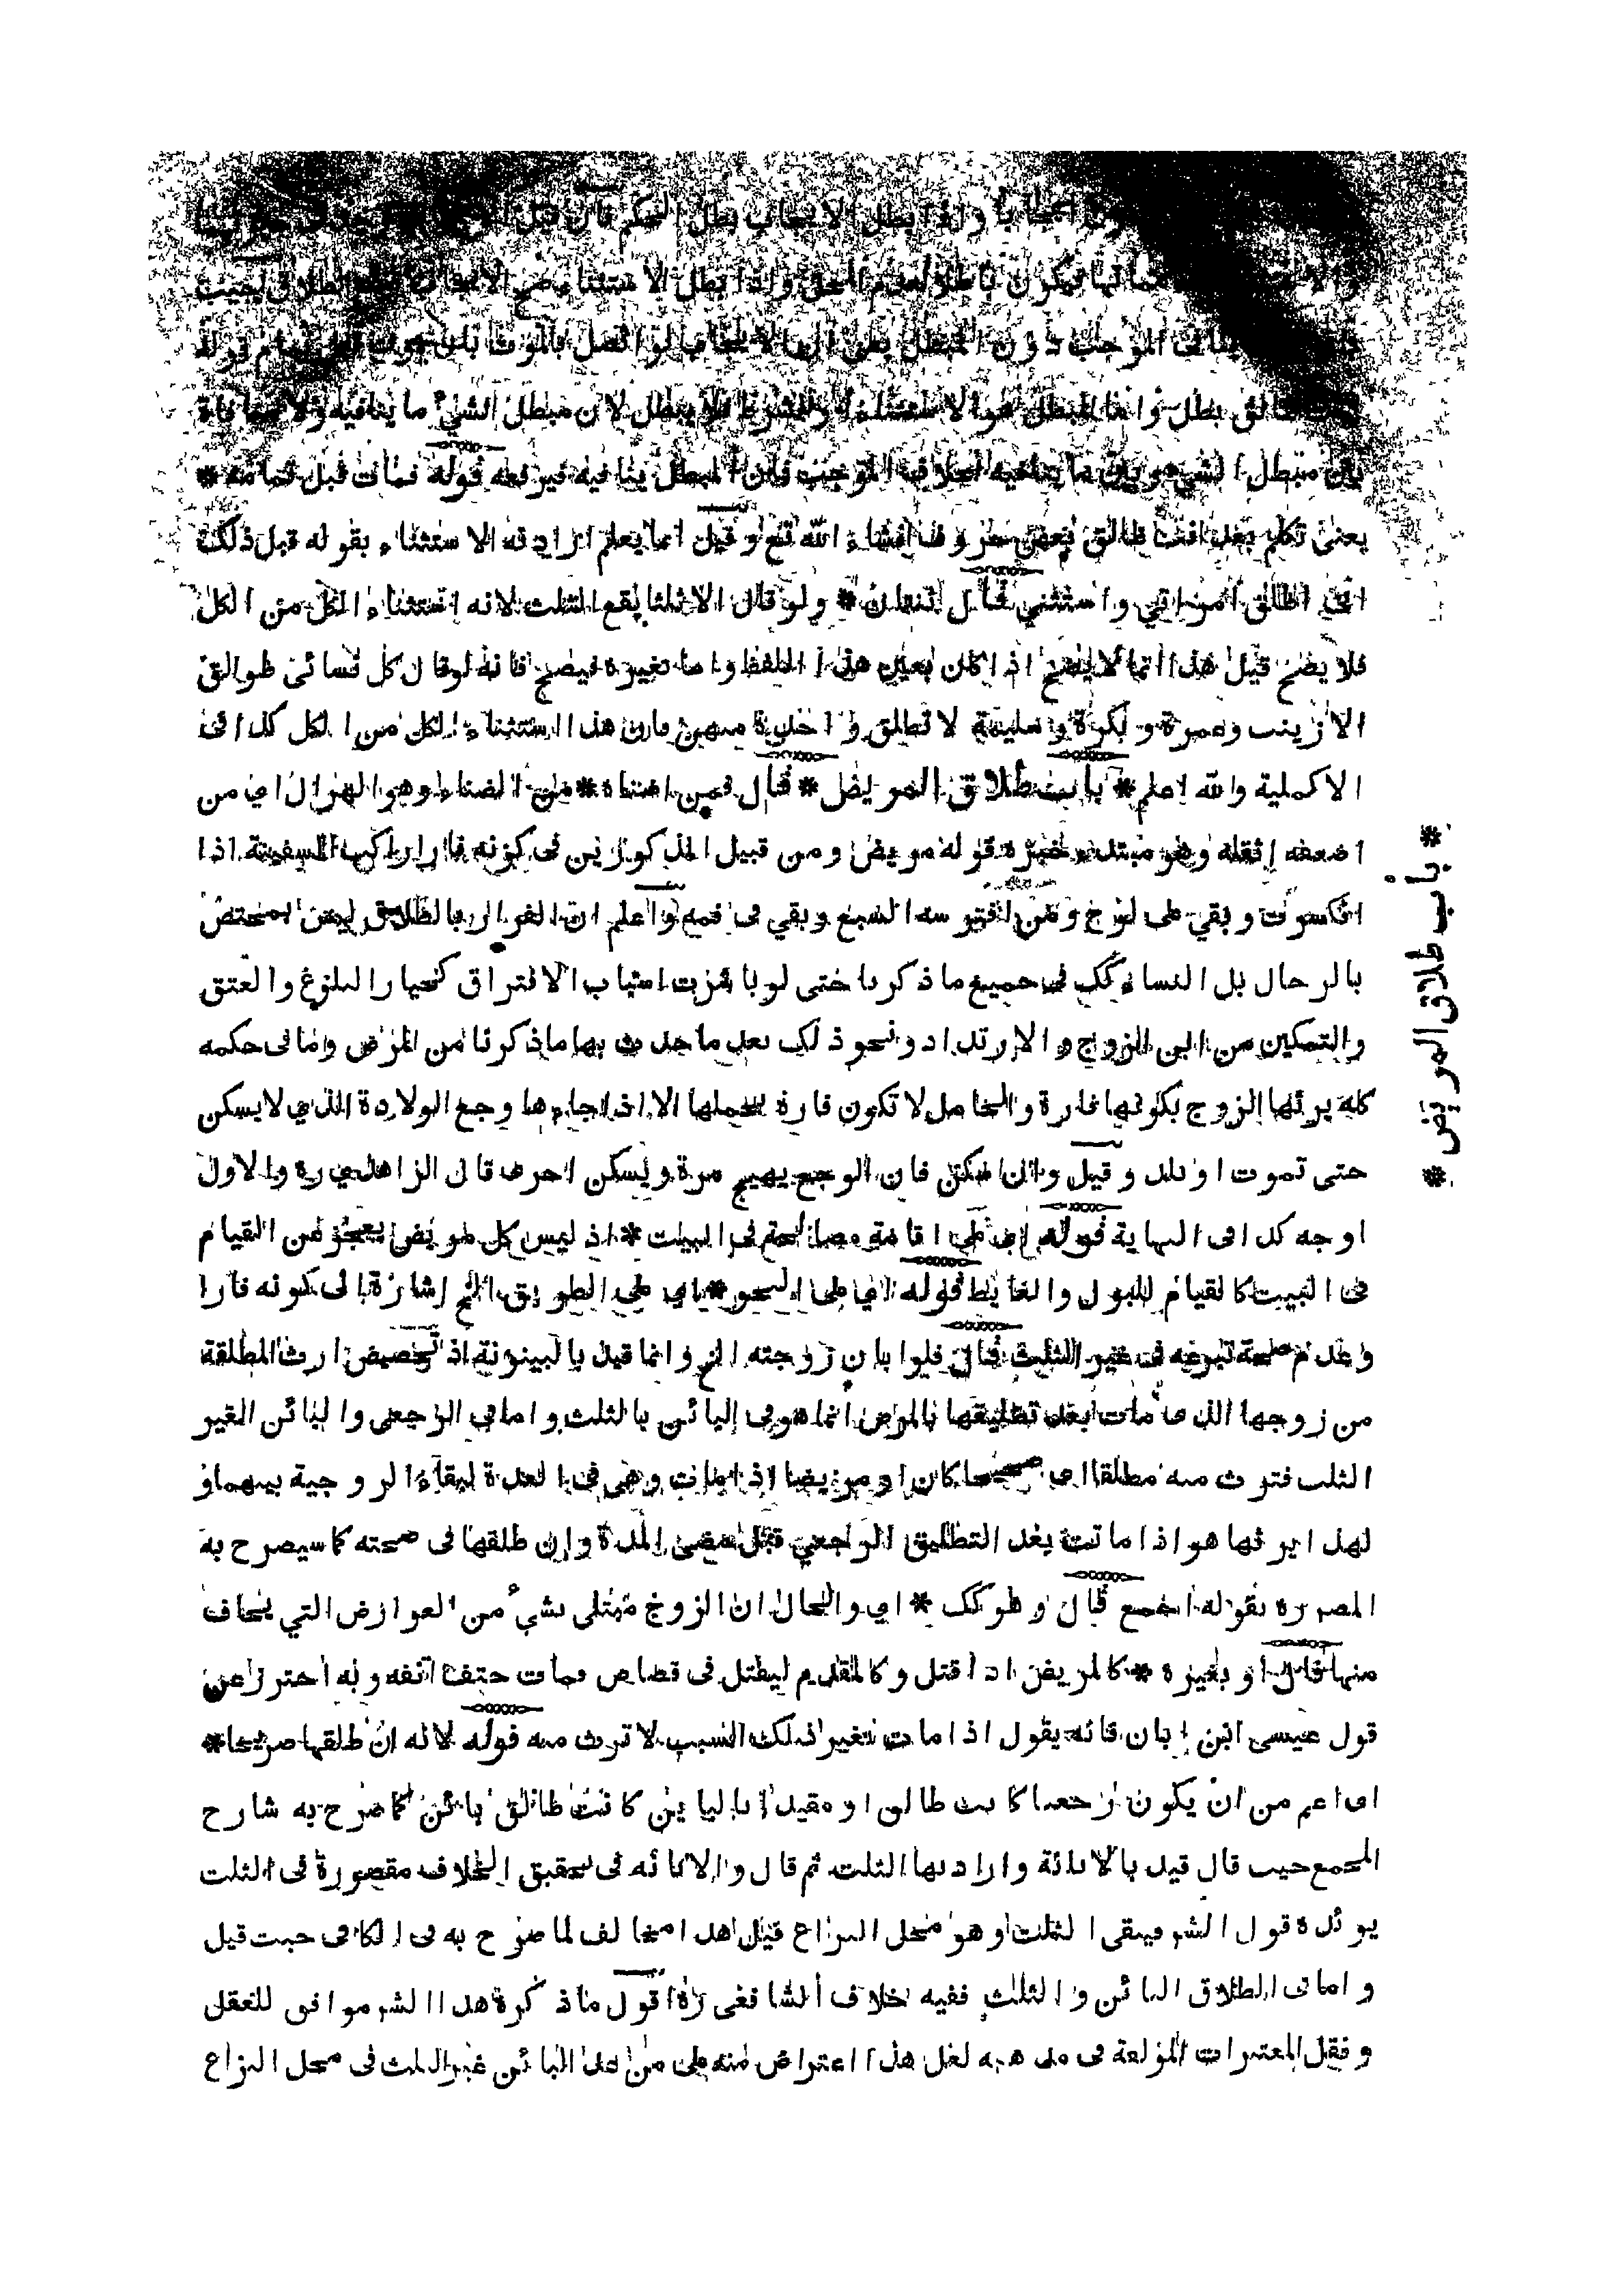 ايجابا واذا بطل الايجاب بطل الحكم فان قيل
فيكون باطلا لعدم المحل ولذا بطل الاستثناء صح الايجاب الطلاق بحيث
الموجب دون المبطل بطل ايضا الايجاب لو اتصل بالموت
طالق بطل وانما المبطل هو الاستثناء والشرط فلا يبطل لان مبطل الشيء ما ينافيه ولا منافاة
بين مبطل الشيء وبين ما ينافيه بخلاف الموجب فان المبطل ينافيه فيرفعه قوله فمات قبل تمامه *
يعنى تكلم بعد انت طالق بعض حروف انشاء الله تع وقيل انما يعلم ارادته الاستثناء بقوله قبل ذلك
انى اطلق امراتي واستثني قال ثنتان * ولو قال الا ثلثا يقع الثلث لانه استثناء الكل من الكل
فلا يصح قيل هذا انما لا يصح اذا كان بعين هذا اللفظ واما بغيره فيصح فانه لو قال كل نسائى طوالق
الا زينب وعمرة وبكرة وسليمة لا تطلق واحدة منهن وان هذا استثناء الكل من الكل كذا فى
الاكملية والله اعلم * باب طلاق المريض * قال فمن اضناه * من الضناء وهو الهزال اي من
اضعفه اثقله وهو مبتدء خبره قوله مريض ومن قبيل المذكورين فى كونه فارا راكب السفينة اذا
انكسرت وبقي على لوح ومن افترسه السبع وبقي فى فمه واعلم ان الفرار بالطلاق ليس بمختص
بالرجال بل النساء كك فى جميع ما ذكرنا حتى لو باشرت اسباب الافتراق كخيار البلوغ والعتق
والتمكين من ابن الزوج والارتداد ونحو ذلك بعد ما حدث بها ما ذكرنا من المرض وما فى حكمه
كله يرثها الزوج بكونها فارة والحامل لا تكون فارة بحملها الا اذا جاءها وجع الولادة الذي لا يسكن
حتى تموت او تلد وقيل وان سكن فان الوجع يهيج مرة ويسكن اخرى قال الزاهدي ره والاول
اوجه كذا فى النهاية قوله اى على اقامة مصالحه فى البيت * اذ ليس كل مريض يعجز من القيام
فى البيت كالقيام للبول والغايط قوله اي على النحو * اي على الطريق الخ اشارة الى كونه فارا
وعدم صحة تبرعه فى غير الثلث قال فلوا بان زوجته الخ وانما قيل بالبينونة اذ تخصيص ارث المطلقة
من زوجها الذى مات بعد تطليقها بالمرض انما هو فى البائن بالثلث واما فى الرجعى والبائن الغير
الثلث فترث منه مطلقا اى صحيحا كان او مريضا اذا مات وهى فى العدة لبقاء الزوجية بينهما و
لهذا يرثها هو اذا ماتت بعد التطليق الرجعي قبل مضى المدة وان طلقها فى صحته كما سيصرح به
المصر ره بقوله اجمع قال وهو كك * اي والحال ان الزوج مبتلى بشئ من العوارض التي يخاف
منها قال او بغيره * كالمريض اذا قتل وكالمقدم ليقتل فى قصاص فمات حتف انفه وبه احترز عن
قول عيسى ابن ابان فانه يقول اذا مات بغير ذلك السبب لا ترث منه قوله لانه ان طلقها صريحا *
اى اعم من ان يكون رجعيا كانت طالق او مقيدا بالباين كانت طالق بائن كما صرح به شارح
المجمع حيث قال قيد بالابانة واراد بها الثلث ثم قال والا كانه فى تحقيق الخلاف مقصورة فى الثلث
يوئده قول الشر فيبقى الثلث وهو محل النزاع قيل هذا مخالف لما صرح به فى الكافى حيث قيل
واما فى الطلاق البائن والثلث ففيه خلاف الشافعى ره اقول ما ذكره هذا الشر موافق للعقل
ونقل المعتبرات المؤلفة فى مذهبه لعل هذا اعتراض منه على من عد البائن غير الثلث فى محل النزاع
* باب طلاق المريض *